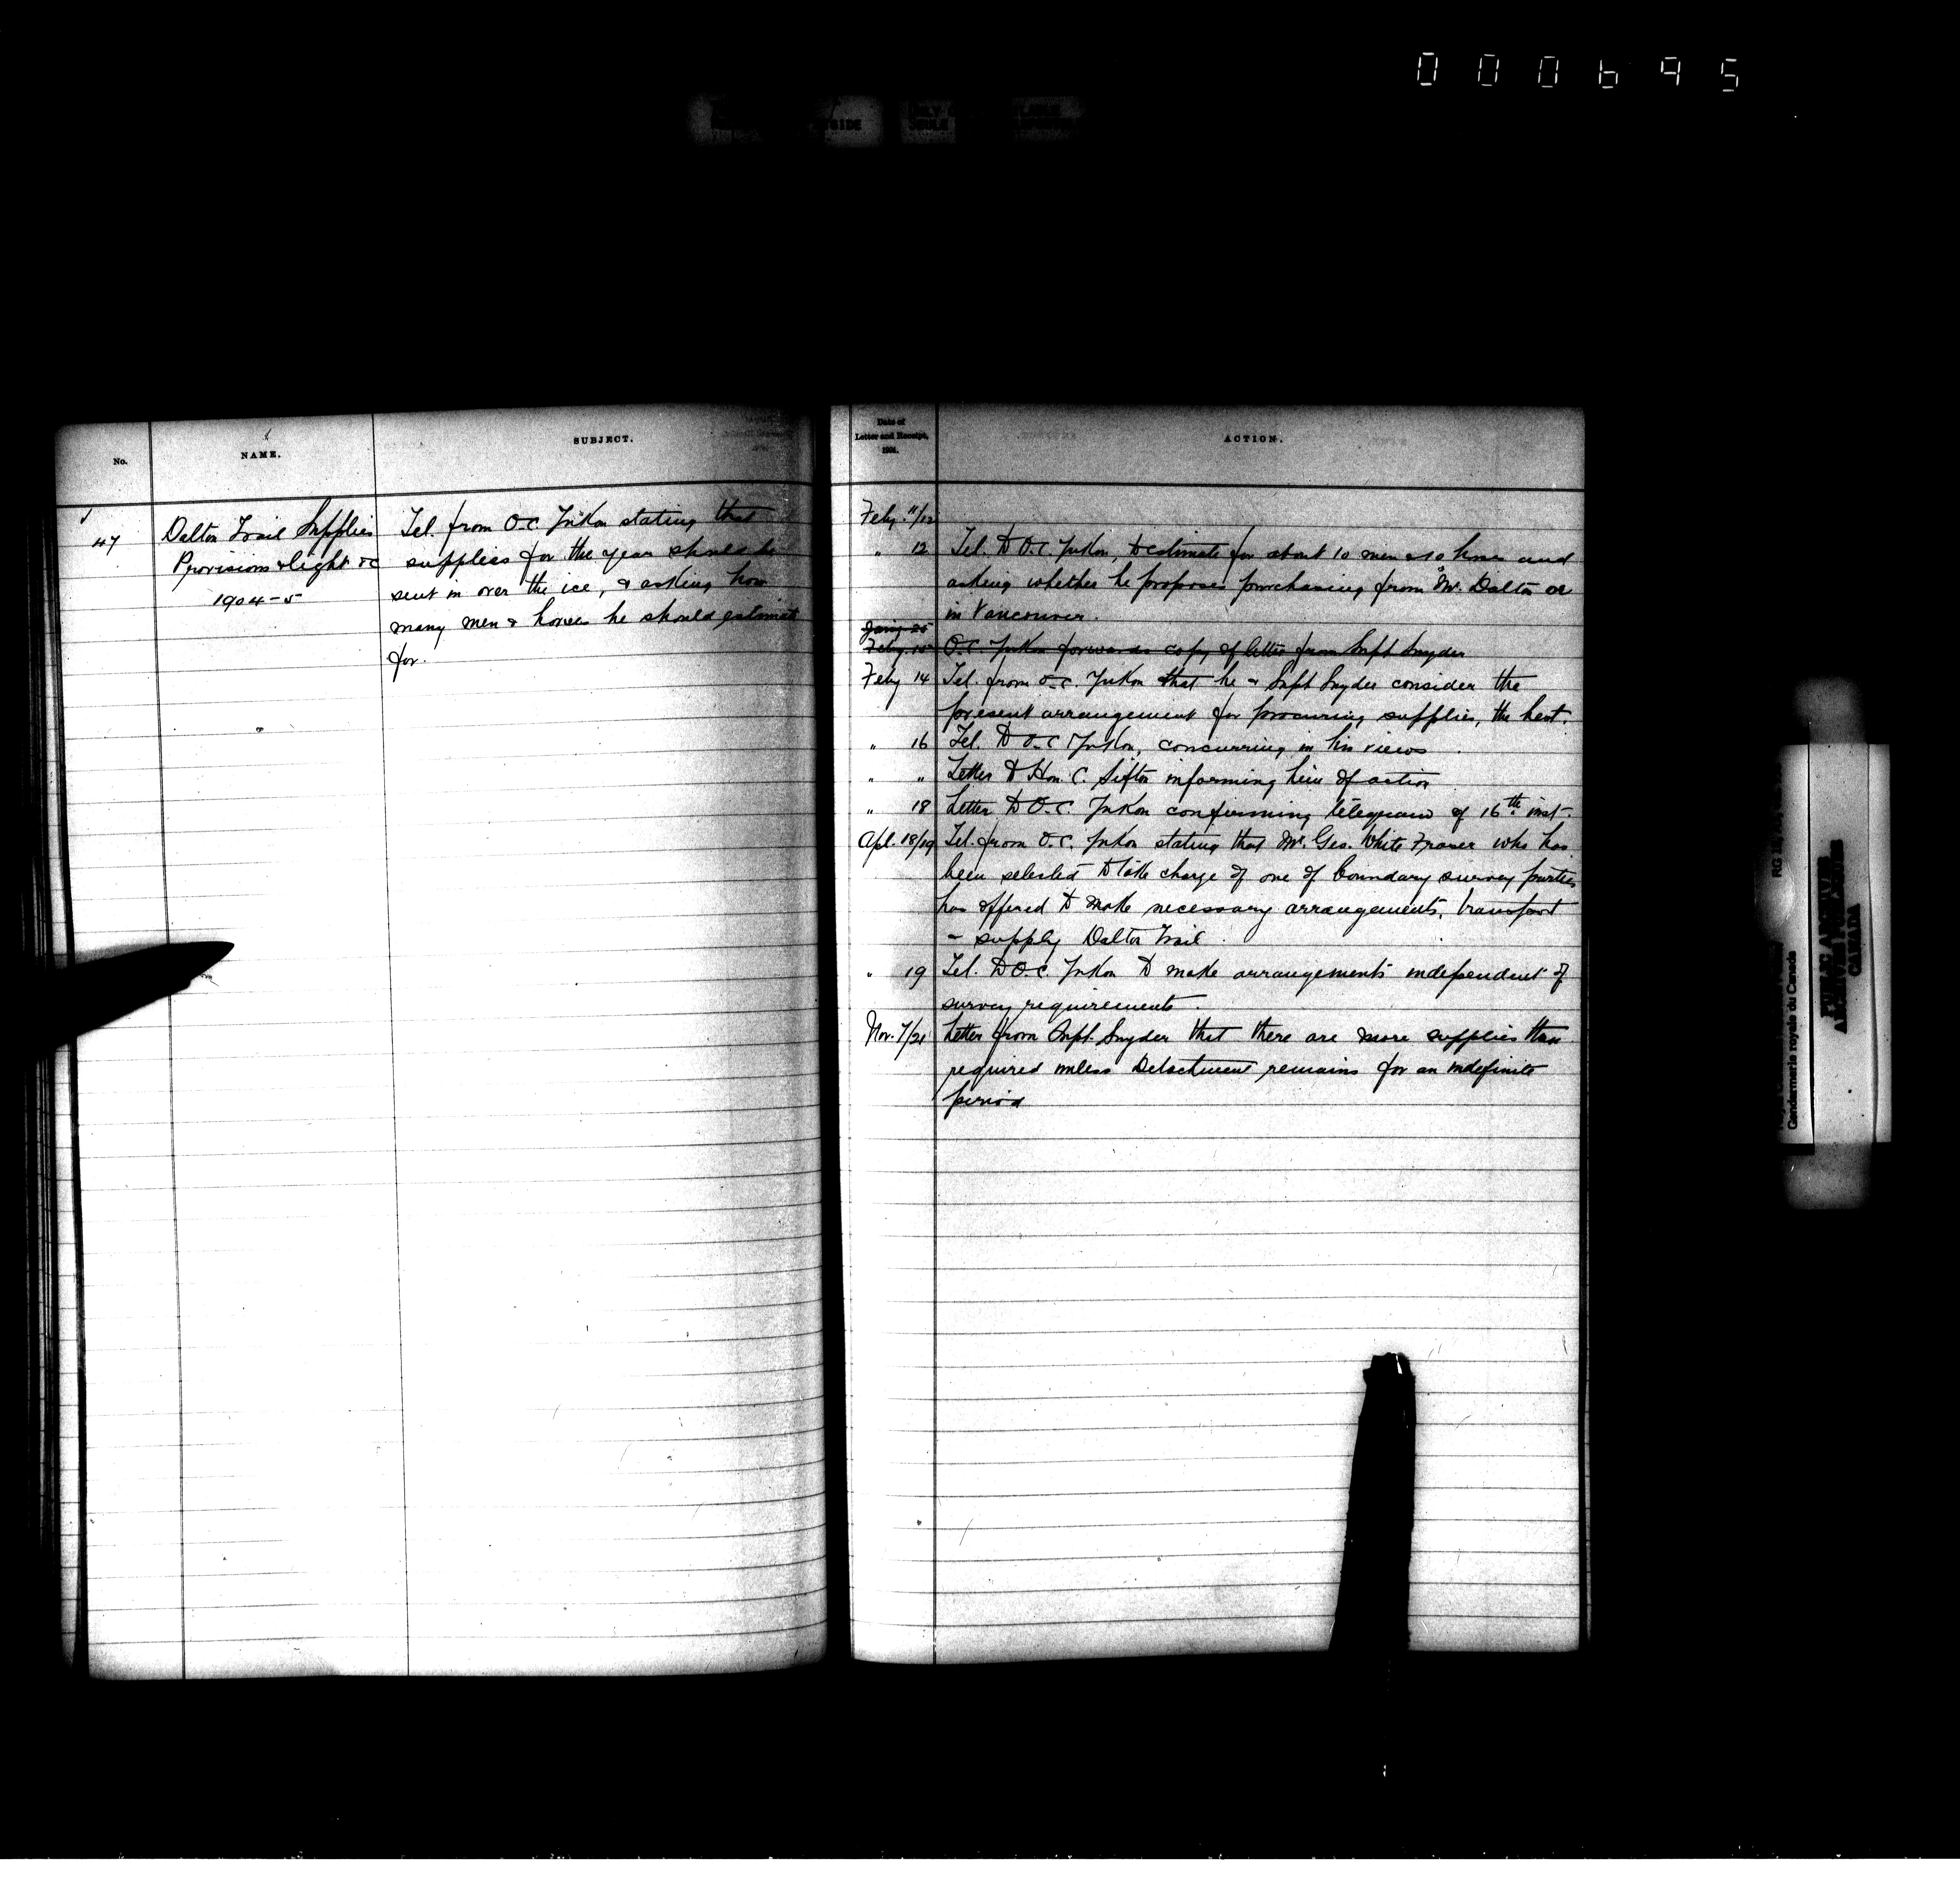 000695
No.
NAME.
SUBJECT.
47
Dalton Trail Supplies
Provisions & light &c
1904-5
Tel. from O.C. Yukon stating that
supplies for the year should be
sent in over the ice, & asking how
many men & horses he should estimate
for.
Date of
Letter and Receipt,
1904.
ACTION.
Feby. 11/12
" 12 Tel. to O.C. Yukon, to estimate for about 10 men & 10 horses and
asking whether he proposes purchasing from Mr. Dalton or
in Vancouver.
Jany 25
Feby. 15 O.C. Yukon forwards copy of letter from Supt Snyder
Feby 14 Tel. from O.C. Yukon that he & Supt Snyder consider the
present arrangement for procuring supplies, the best.
" 16 Tel. to O.C. Yukon, concurring in his views
" " Letter to Hon. C. Sifton informing him of action
" 18 Letter to O.C. Yukon confirming telegram of 16th inst.
Apl. 18/19 Tel. from O.C. Yukon stating that Mr. Geo. White Fraser who has
been selected to take charge of one of boundary survey parties
has offered to make necessary arrangements, transport
& supply Dalton Trail.
" 19 Tel. to O.C. Yukon to make arrangements independent of
survey requirements.
Nov. 7/21 Letter from Supt. Snyder that there are more supplies than
required unless Detachment remains for an indefinite
period
Gendarmerie royale du Canada
RG 18
CANADA